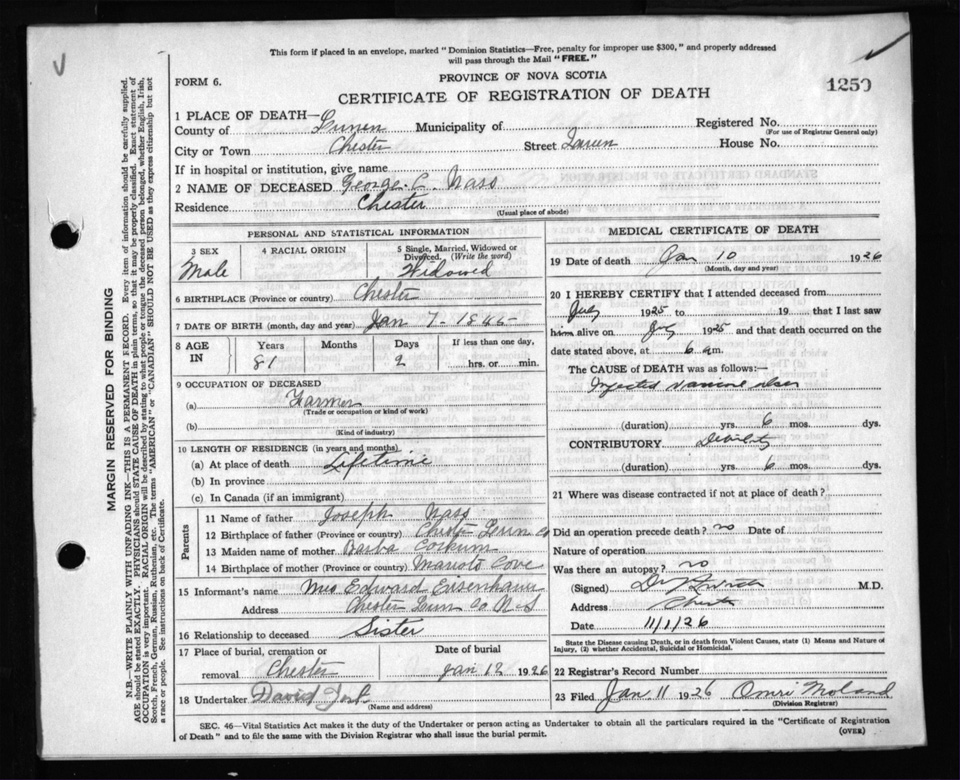 This form if placed in an envelope, marked "Dominion Statistics—Free, penalty for improper use $300," and properly addressed
will pass through the Mail "FREE."
FORM 6.
PROVINCE OF NOVA SCOTIA
1250
CERTIFICATE OF REGISTRATION OF DEATH
1 PLACE OF DEATH—
County of Lunen Municipality of Registered No.
(For use of Registrar General only)
City or Town Chester Street House No.
If in hospital or institution, give name
2 NAME OF DECEASED George C. Nass
Residence Chester
(Usual place of abode)
PERSONAL AND STATISTICAL INFORMATION
3 SEX 4 RACIAL ORIGIN 5 Single, Married, Widowed or Divorced. (Write the word)
Male Widowed
6 BIRTHPLACE (Province or country) Chester
7 DATE OF BIRTH (month, day and year) Jan 7 - 1845
8 AGE IN Years Months Days If less than one day,
81 2 hrs. or min.
9 OCCUPATION OF DECEASED
(a) Farmer
(Trade or occupation or kind of work)
(b)
(Kind of industry)
10 LENGTH OF RESIDENCE (in years and months)
(a) At place of death Lifetime
(b) In province
(c) In Canada (if an immigrant)
Parents
11 Name of father Joseph Nass
12 Birthplace of father (Province or country) Chester Lun Co
13 Maiden name of mother Corkum
14 Birthplace of mother (Province or country) Cove
15 Informant's name Mrs Edward Eisenhaur
Address Chester Lun Co N.S
16 Relationship to deceased Sister
17 Place of burial, cremation or removal Date of burial
Chester Jan 12 1926
18 Undertaker David
(Name and address)
MEDICAL CERTIFICATE OF DEATH
19 Date of death Jan 10 1926
(Month, day and year)
20 I HEREBY CERTIFY that I attended deceased from
July 1925 to 19 that I last saw
him alive on July 1925 and that death occurred on
date stated above, at 6 am.
The CAUSE of DEATH was as follows:
(duration) yrs. 6 mos. dys.
CONTRIBUTORY Debility
(duration) yrs. 6 mos. dys.
21 Where was disease contracted if not at place of death?
Did an operation precede death? no Date of
Nature of operation
Was there an autopsy? no
(Signed) M.D.
Address Chester
Date 11/1/26
State the Disease causing Death, or in death from Violent Causes, state (1) Means and Nature of
Injury, (2) whether Accidental, Suicidal or Homicidal.
22 Registrar's Record Number
23 Filed Jan 11 1926 Omri Moland
(Division Registrar)
SEC. 46—Vital Statistics Act makes it the duty of the Undertaker or person acting as Undertaker to obtain all the particulars required in the "Certificate of Registration
of Death" and to file the same with the Division Registrar who shall issue the burial permit.
(OVER)
MARGIN RESERVED FOR BINDING
N.B.—WRITE PLAINLY WITH UNFADING INK—THIS IS A PERMANENT RECORD. Every item of information should be carefully supplied.
AGE should be stated EXACTLY. PHYSICIANS should STATE CAUSE OF DEATH in plain terms, so that it may be properly classified. Exact statement of
OCCUPATION is very important. RACIAL ORIGIN will be described by stating to what people or tongue the deceased person belonged, whether English, Irish,
Scotch, French, German, Russian, Ruthenian, etc. The terms "AMERICAN" or "CANADIAN" SHOULD NOT BE USED as they express citizenship but not
a race or people. See instructions on back of Certificate.